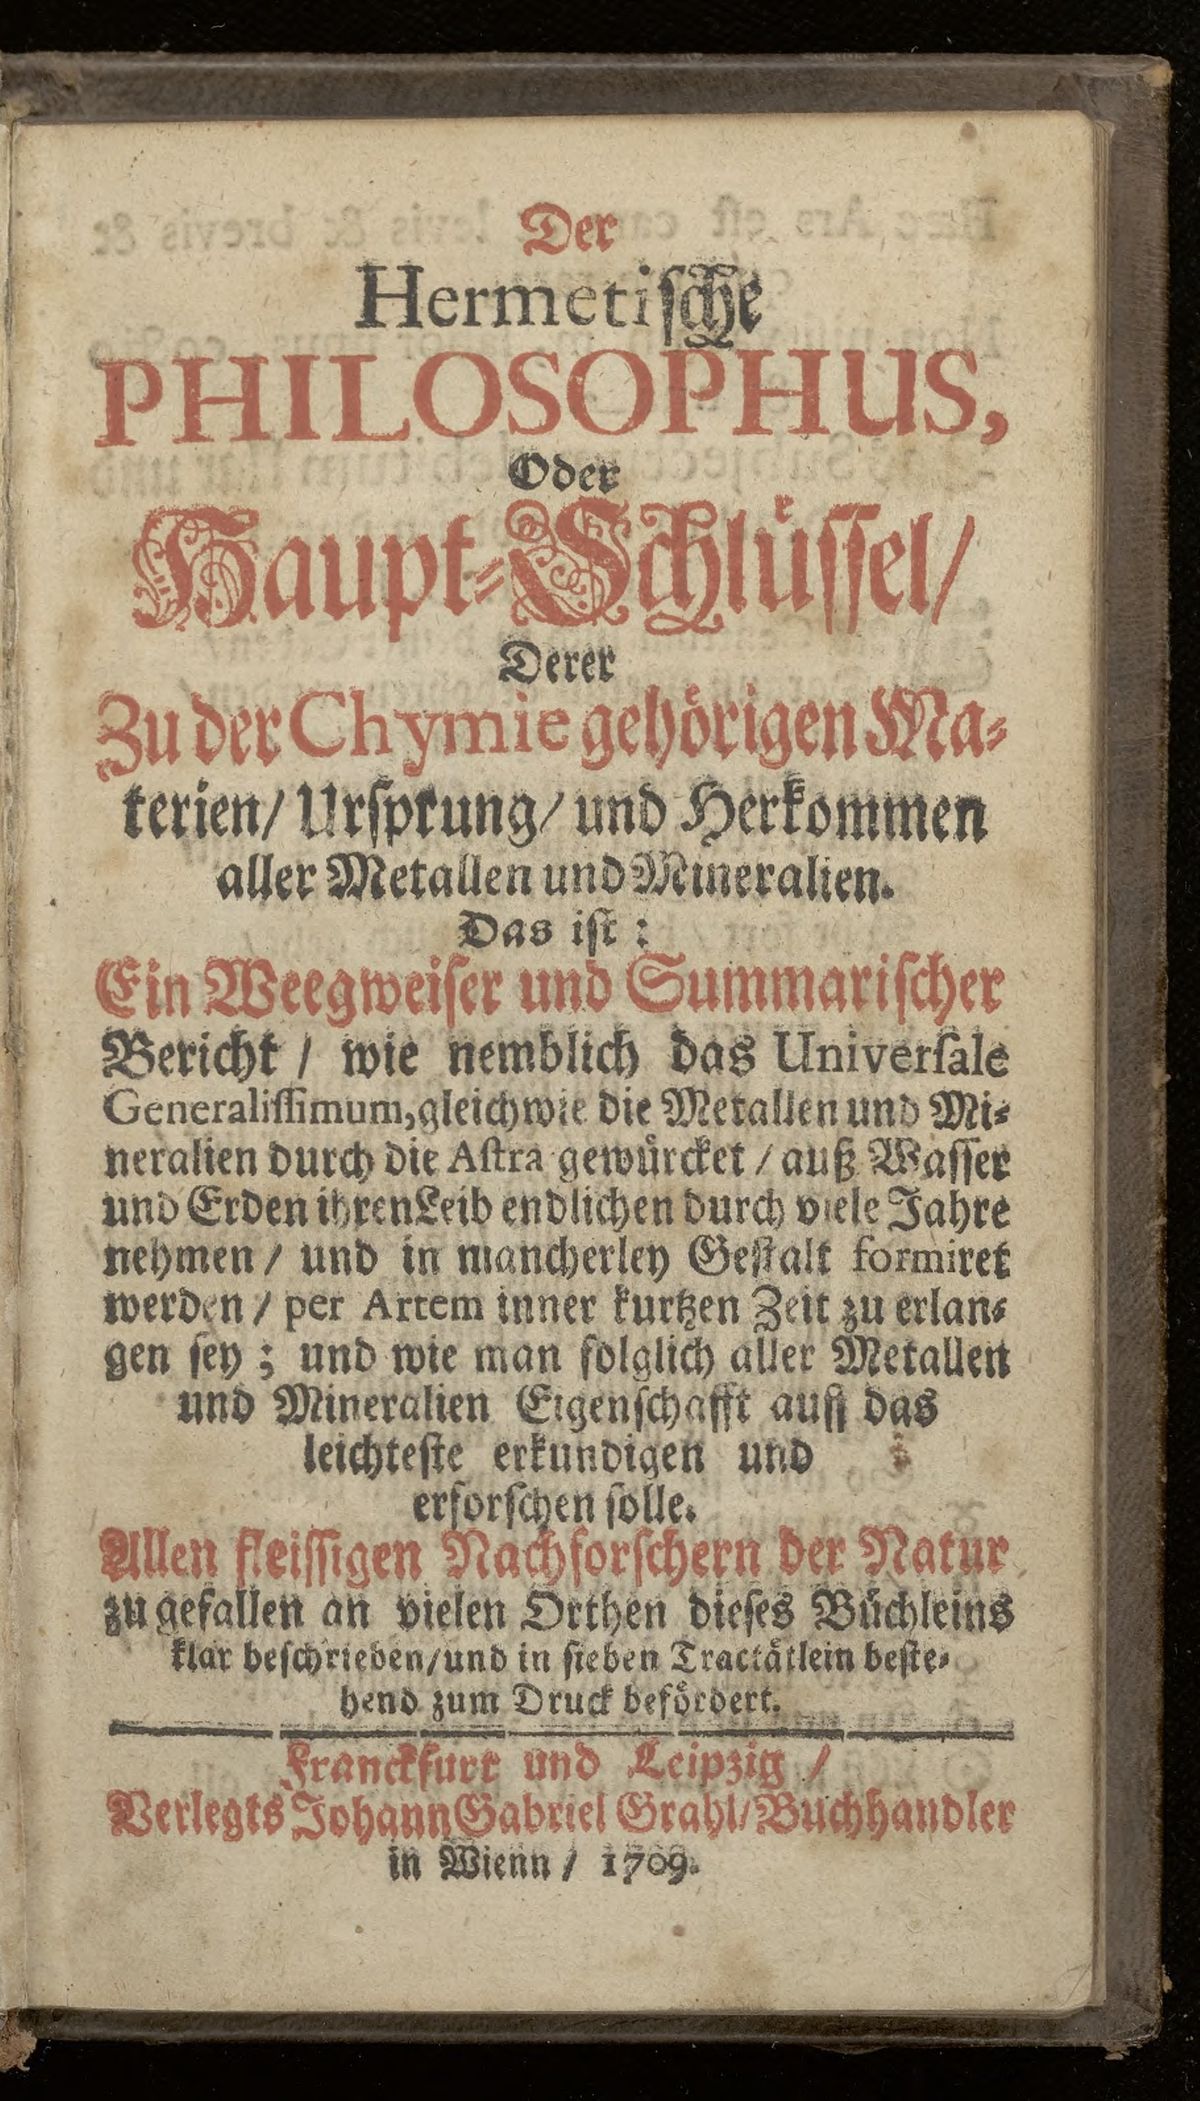 Der
Hermetische
PHILOSOPHUS,
Oder
Haupt-Schlüssel/
Derer
Zu der Chymie gehörigen Ma-
terien/ Ursprung/ und Herkommen
aller Metallen und Mineralien.
Das ist:
Ein Weegweiser und Summarischer
Bericht / wie nemblich das Universale
Generalissimum, gleichwie die Metallen und Mi-
neralien durch die Astra gewürcket / auß Wasser
und Erden ihren Leib endlichen durch viele Jahre
nehmen / und in mancherley Gestalt formiret
werden / per Artem inner kurtzen Zeit zu erlan-
gen sey; und wie man folglich aller Metallen
und Mineralien Eigenschafft auff das
leichteste erkundigen und
erforschen solle.
Allen fleissigen Nachforschern der Natur
zu gefallen an vielen Orthen dieses Büchleins
klar beschrieben/und in sieben Tractätlein beste-
hend zum Druck befördert.
Franckfurt und Leipzig /
Verlegts Johann Gabriel Grahl/Buchhandler
in Wienn / 1709.